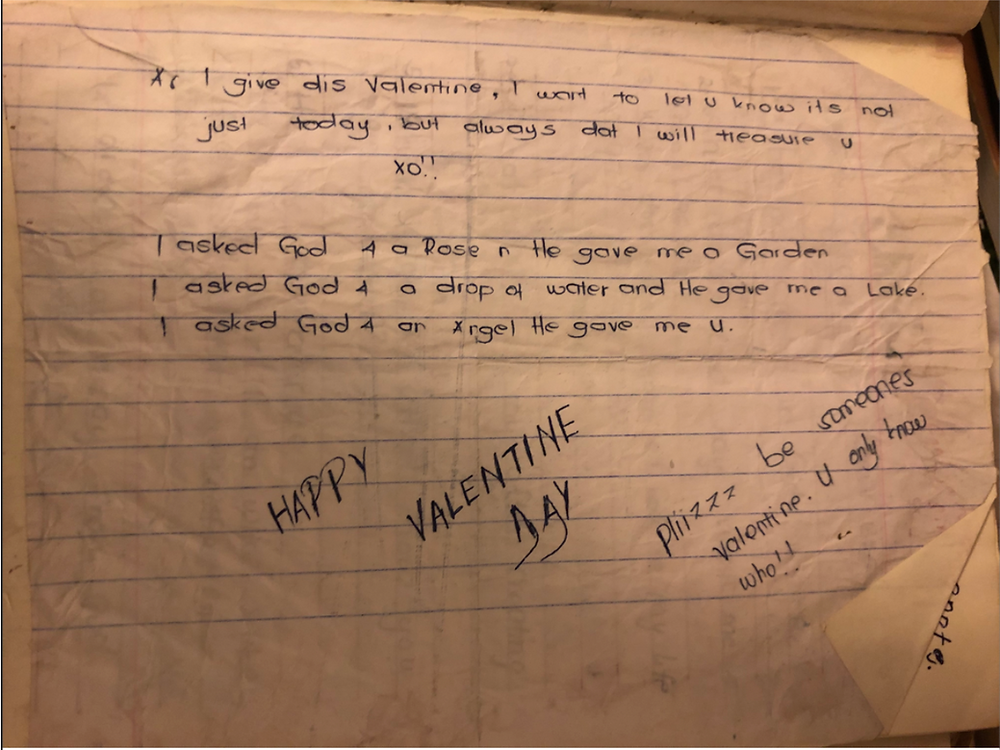 As I give dis Valentine, I want to let u know its not
just today, but always dat I will treasure u
xo!!
I asked God 4 a Rose n He gave me a Garden
I asked God 4 a drop of water and He gave me a Lake.
I asked God 4 an Angel He gave me u.
HAPPY VALENTINE DAY
pliizzz be someones
valentine. u only know
who!!